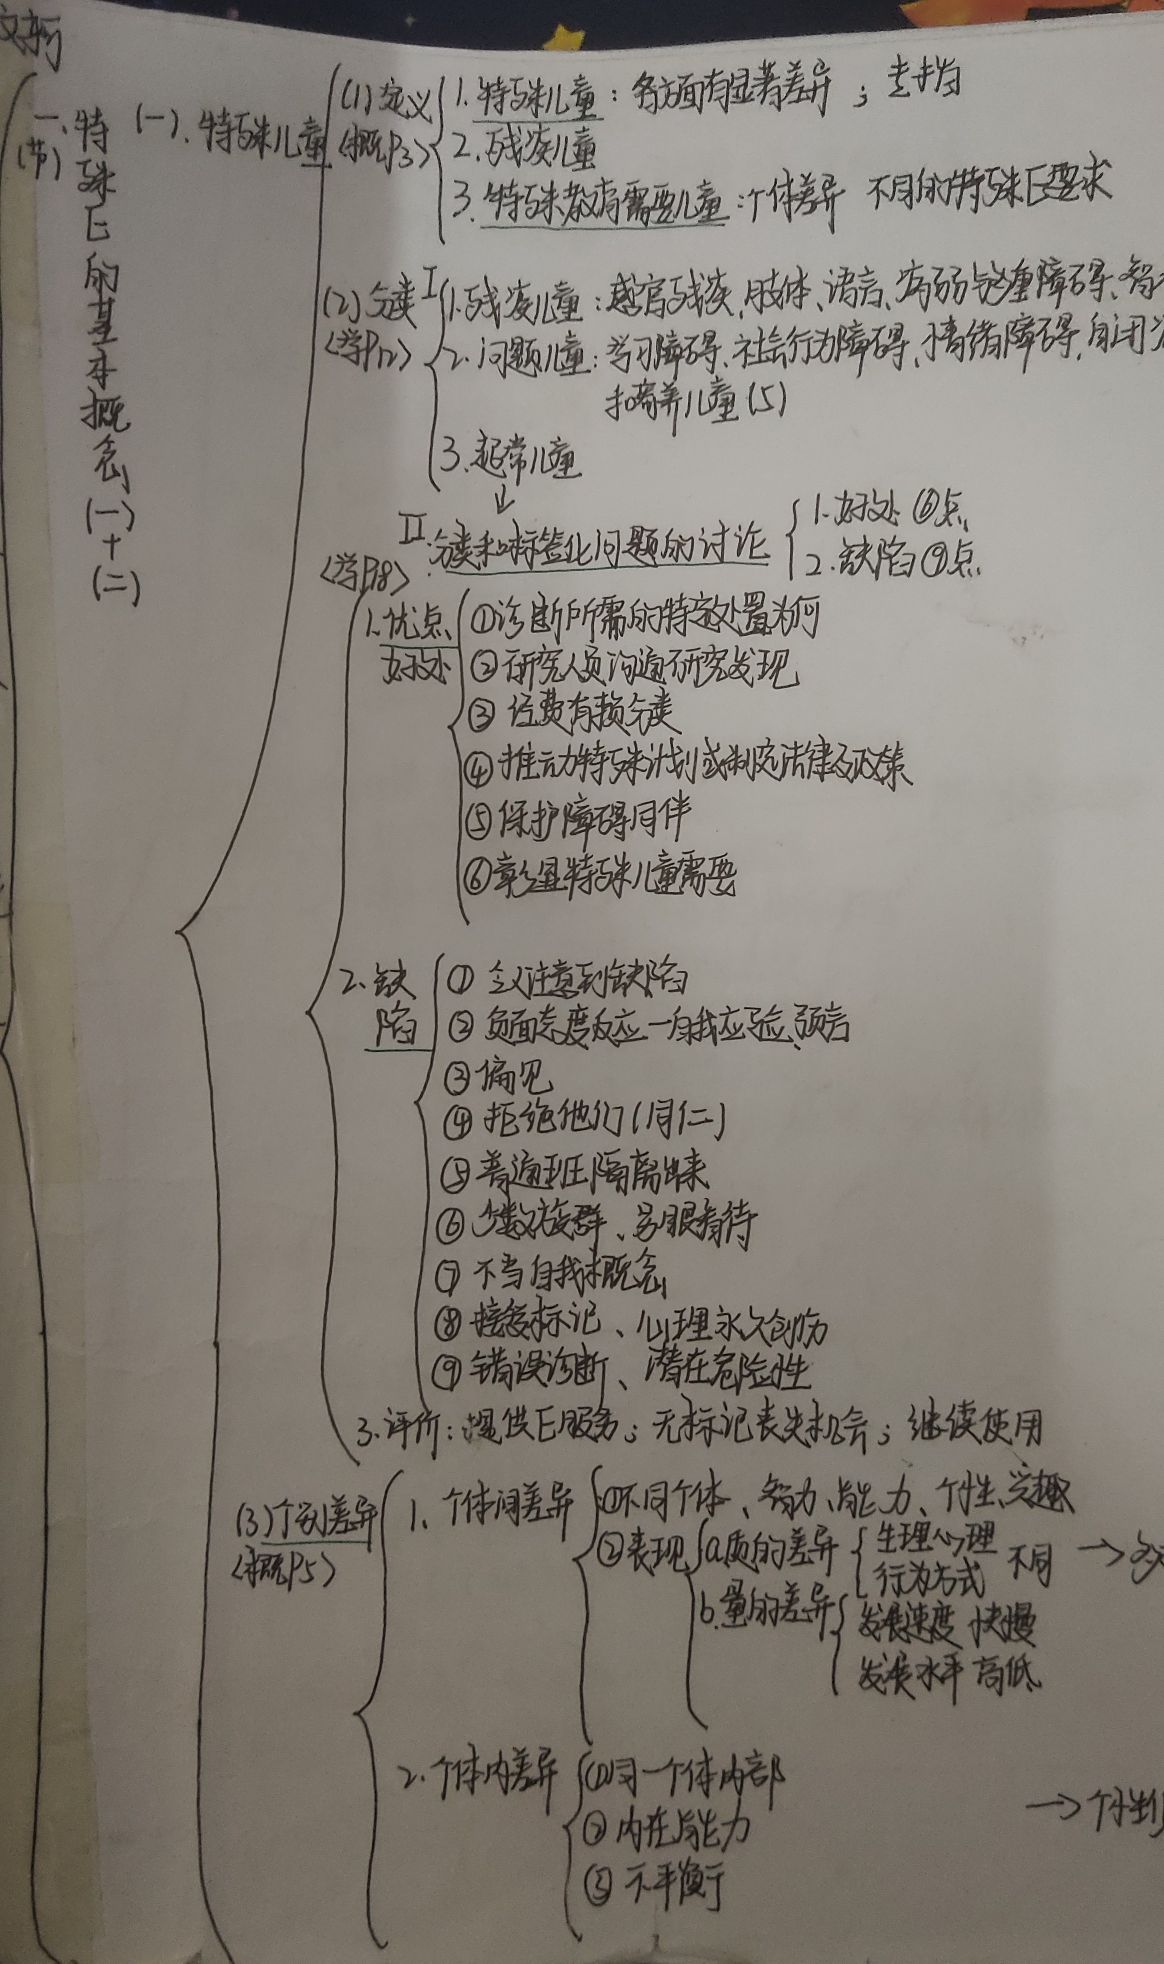 一、特殊E的基本概念(一)+(二)
(节)
(一).特殊儿童
(1)定义
<概P3>
1.特殊儿童：各方面有显著差异；
2.残疾儿童
3.特殊教育需要儿童：个体差异 不同的特殊E要求
(2)分类 I
<学P12>
1.残疾儿童：感官残疾、肢体、语言、病弱与多重障碍、智
2.问题儿童：学习障碍、社会行为障碍、情绪障碍、自闭
(5)
3.超常儿童
↓
II.分类和标签化问题的讨论
<学P18>
1.好处⑥点
2.缺陷⑨点
1.优点、
好处
①诊断所需的特殊处置为何
②研究人员沟通研究发现
③经费有赖分类
④推动特殊计划或制定法律及政策
⑤保护障碍同伴
⑥彰显特殊儿童需要
2.缺
陷
①会注意到缺陷
②负面态度反应—自我应验、预言
③偏见
④拒绝他们(同仁)
⑤普通班隔离出来
⑥少数族群、另眼看待
⑦不当自我概念
⑧接受标记、心理永久创伤
⑨错误诊断、潜在危险性
3.评价：提供E服务；无标记丧失机会；继续使用
(3)个别差异
<概P5>
1.个体间差异
①不同个体、智力、能力、个性、兴趣
②表现
a.质的差异
生理心理
行为方式
不同 →
b.量的差异
发展速度 快慢
发展水平 高低
2.个体内差异
①同一个体内部
②内在能力
③不平衡
→个性化